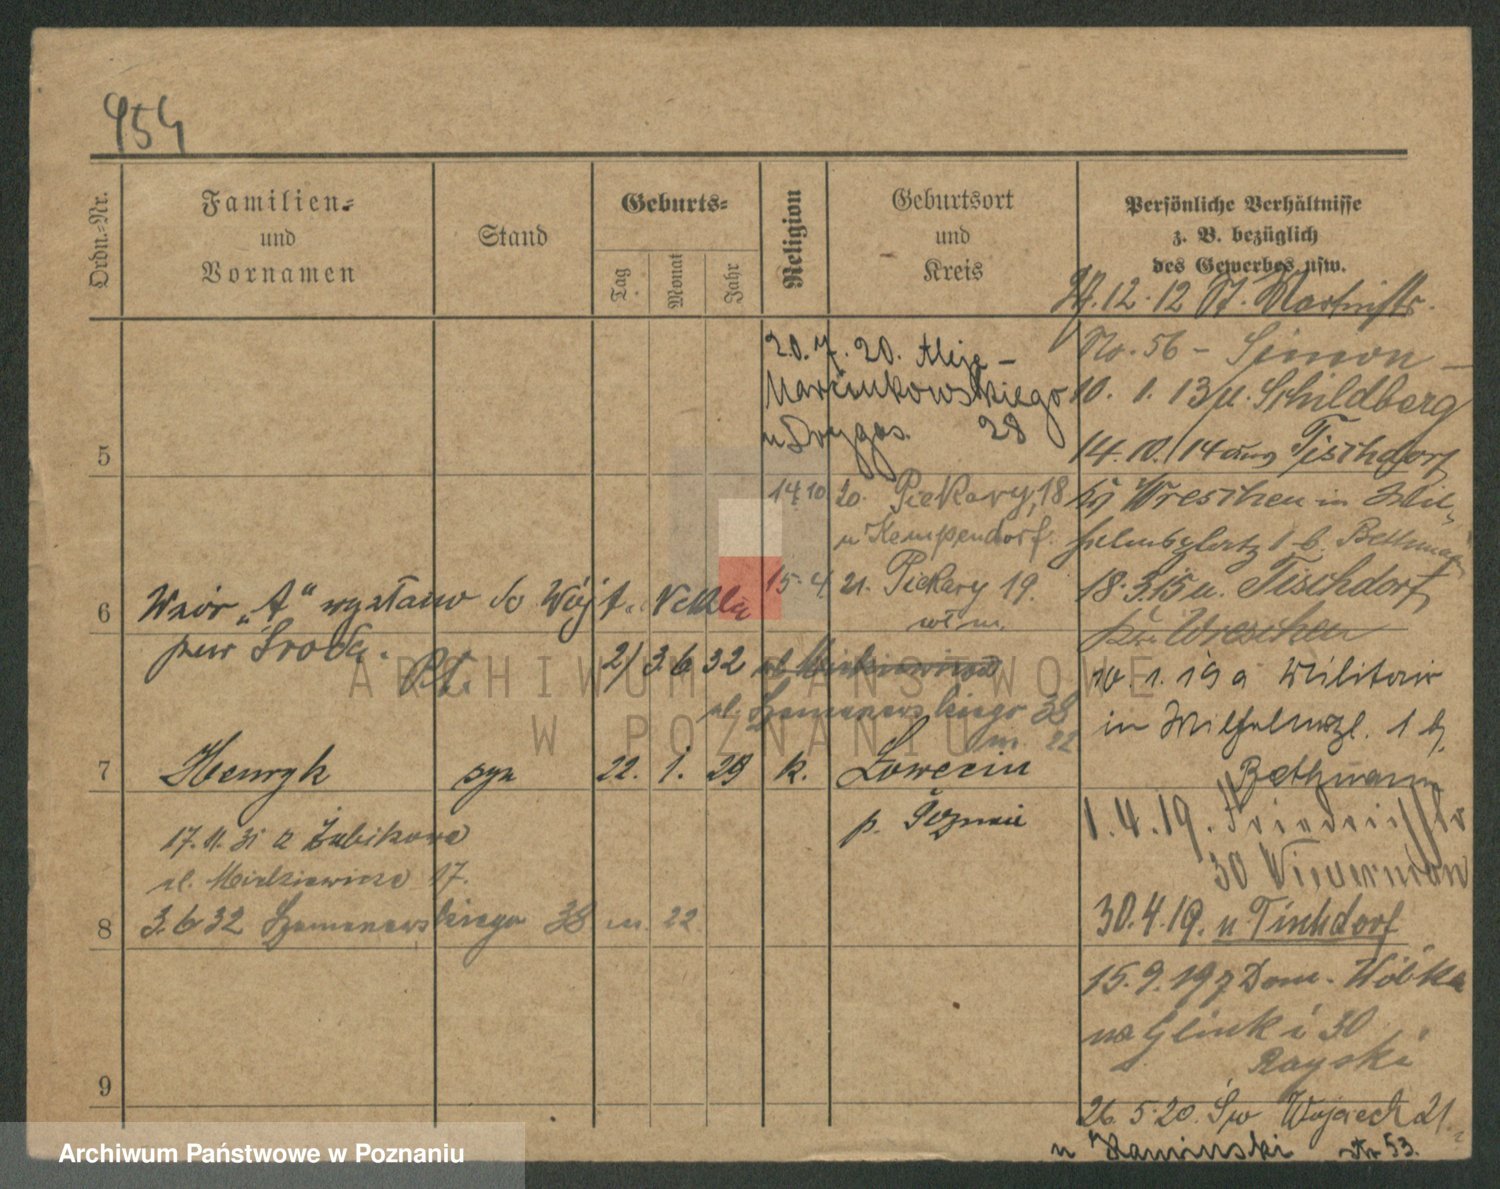 954
Ordn.-Nr.
Familien-
und
Vornamen
Stand
Geburts-
Tag
Monat
Jahr
Religion
Geburtsort
und
Kreis
Persönliche Verhältnisse
z. B. bezüglich
des Gewerbes usw.
12. 12 St. Martinstr.
No. 56 - Simon -
10. 1. 13 n. Schildberg
14. 10. 14 aus Tischdorf
Kr Wreschen in Wil-
helmsplatz 1 b. Bethmann
18. 3. 15 n. Tischdorf
Kr. Wreschen
10. 1. 19 a Militair
in Wilhelmspl. 1 b.
Bethmann
1. 4. 19. Friedrichstr
30
30. 4. 19. n Tischdorf
15. 9. 19 z Dom. Wólka
na Glinki 30
Rayski
26. 5. 20. Św Wojciech 21
u Kaminski Nr 53.
20. 7. 20. Aleje -
Marcinkowskiego
u Drygas. 28
14 10 20. Piekary 18
u Kempendorf.
15. 4. 21. Piekary 19.
włm.
5
6
Wzór „A" wysłano do Wójt. Nekla
pow Środa.
21 3 6 32 ul Mickiewicza
ul. Szamarzewskiego 38
m. 22
7
Henryk syn 22. 1. 29 k. Lowecin
p. Poznań
17. 11. 31 z Żabikowa
ul. Mickiewicza 17.
8
3. 6 32 Szamarzewskiego 38 m. 22
9
ARCHIWUM PAŃSTWOWE
W POZNANIU
Archiwum Państwowe w Poznaniu